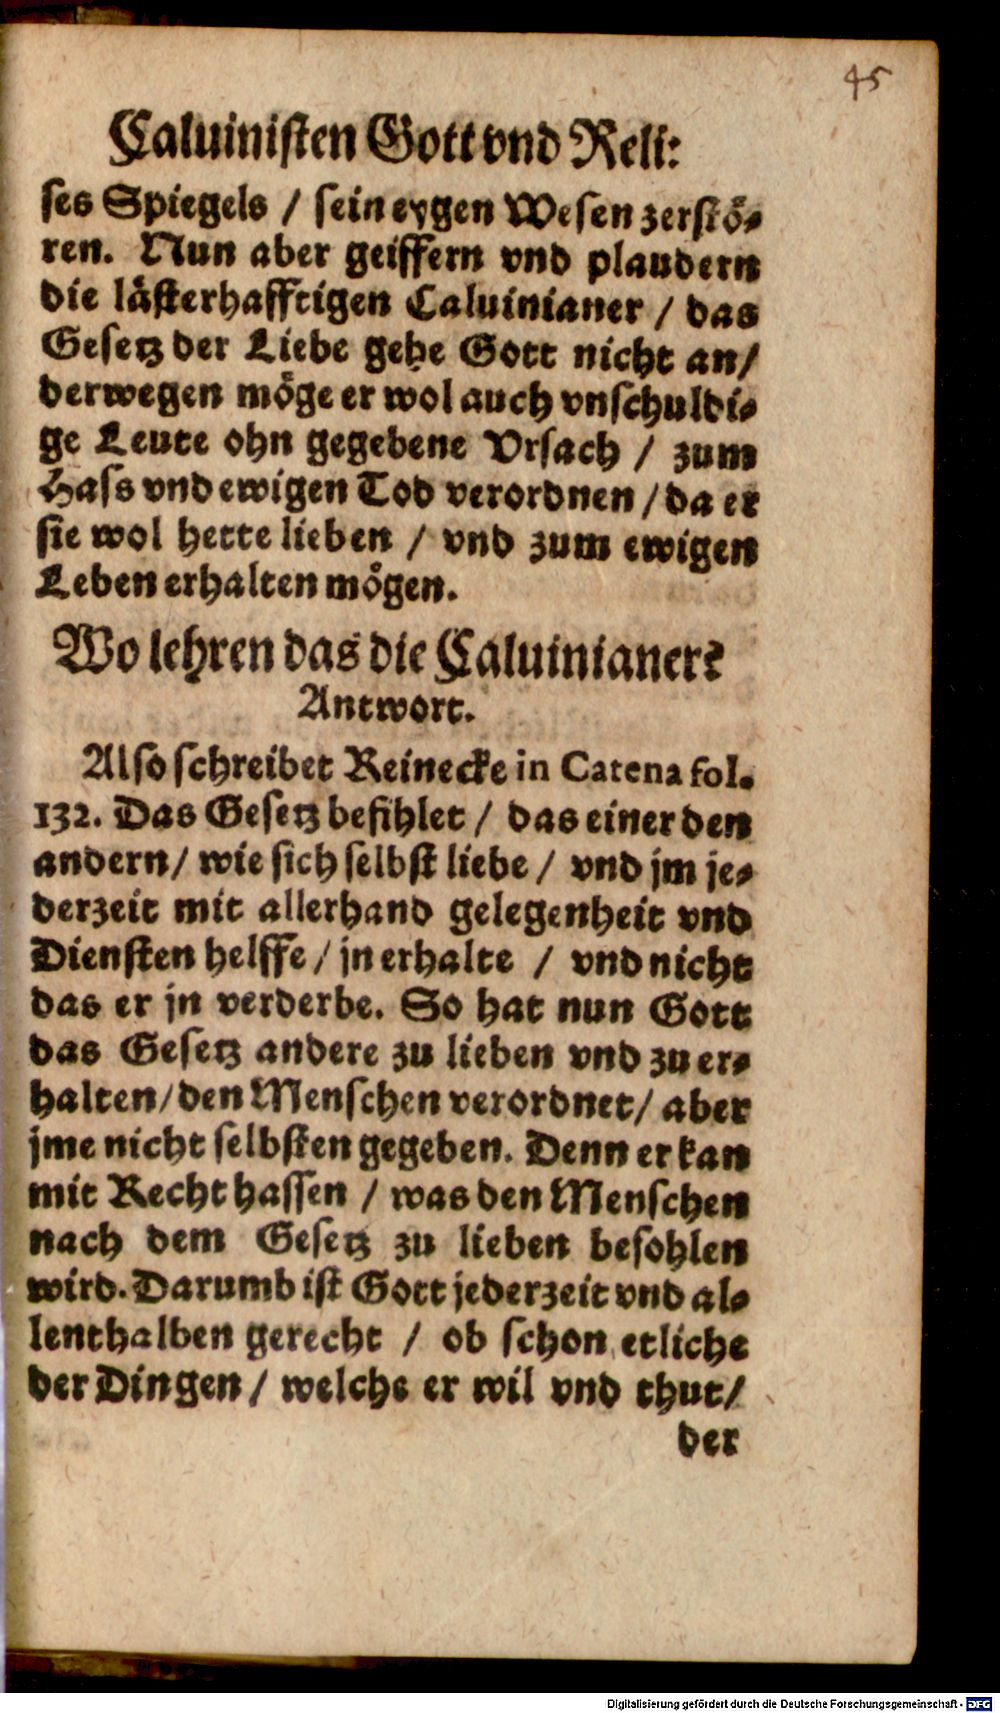 45
Caluinisten Gott vnd Reli:
ses Spiegels / sein eygen Wesen zerstö-
ren. Nun aber geiffern vnd plaudern
die lästerhafftigen Caluinianer / das
Gesetz der Liebe gehe Gott nicht an/
derwegen möge er wol auch vnschuldi-
ge Leute ohn gegebene Vrsach / zum
Hass vnd ewigen Tod verordnen / da er
sie wol hette lieben / vnd zum ewigen
Leben erhalten mögen.
Wo lehren das die Caluinianer?
Antwort.
Also schreibet Reinecke in Catena fol.
132. Das Gesetz befihlet / das einer den
andern / wie sich selbst liebe / vnd jm je-
derzeit mit allerhand gelegenheit vnd
Diensten helffe / jn erhalte / vnd nicht
das er jn verderbe. So hat nun Gott
das Gesetz andere zu lieben vnd zu er-
halten / den Menschen verordnet / aber
jme nicht selbsten gegeben. Denn er kan
mit Recht hassen / was den Menschen
nach dem Gesetz zu lieben befohlen
wird. Darumb ist Gott jederzeit vnd al-
lenthalben gerecht / ob schon etliche
der Dingen / welche er wil vnd thut /
der
Digitalisierung gefördert durch die Deutsche Forschungsgemeinschaft - DFG